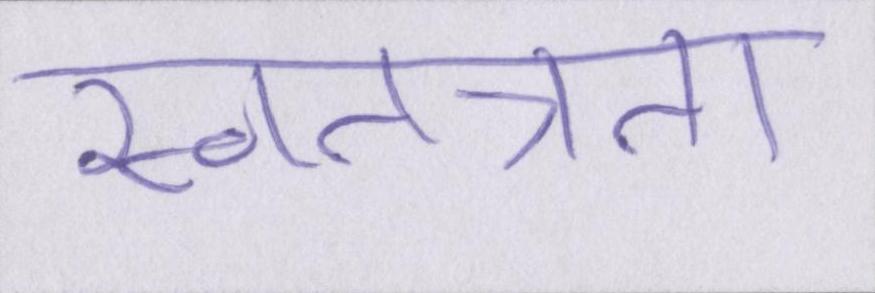 स्वतत्रता